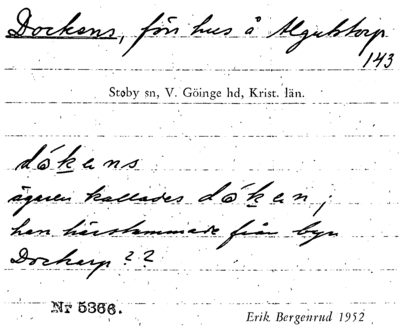 Dockens, förr hus å Algustorp
143
Stoby sn, V. Göinge hd, Krist. län.
dókens
ägaren kallades dóken;
han härstammade från byn
Dockarp??
Nr 5366.
Erik Bergenrud 1952